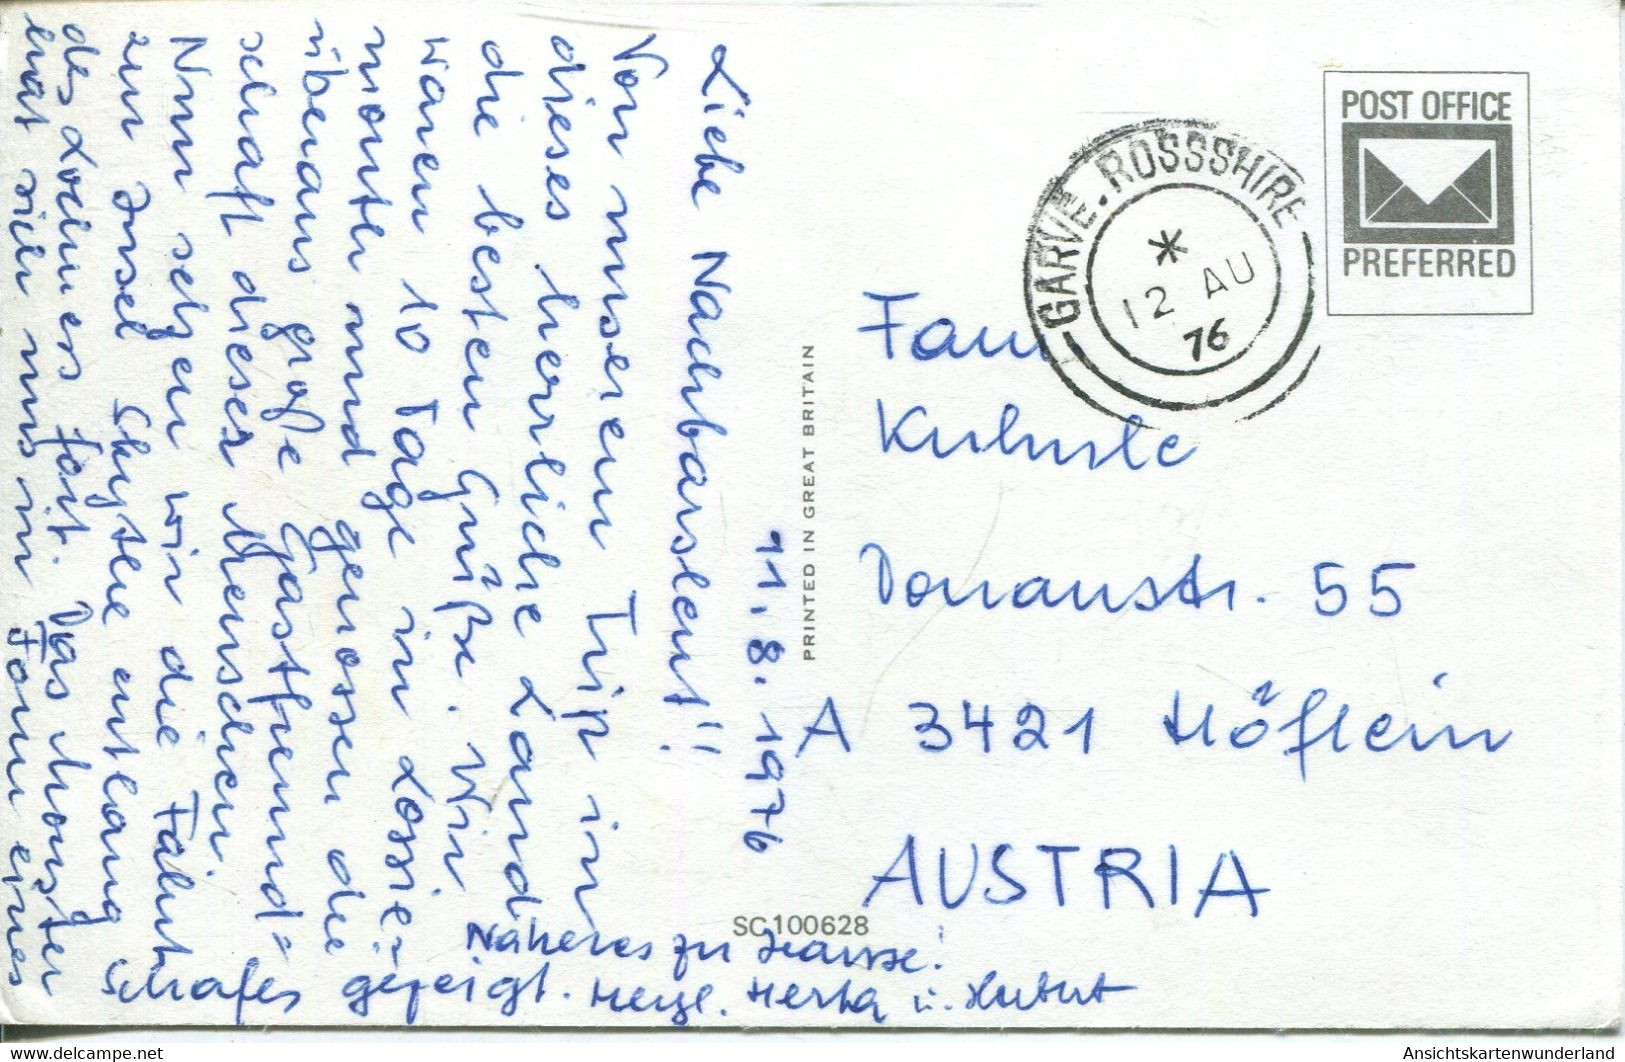 11. 8. 1976
Liebe Nachbarsleut!!
Von unserem Trip in
dieses herrliche Land
die besten Grüße. Wir
waren 10 Tage in Lossie=
mouth und genossen die
überaus große Gastfreund=
schaft dieser Menschen.
Nun setzen wir die Fahrt
zur Insel Skye entlang
des Loch Ness fort. Das Monster
hat sich uns in Form eines
Schafes gezeigt.
Näheres zu Hause!
Herzl. Herta u. Hubert
PRINTED IN GREAT BRITAIN
SC100628
POST OFFICE
PREFERRED
GARVE. ROSSSHIRE
*
12 AU
76
Fam
Donaustr. 55
A 3421 Höflein
AUSTRIA
www.delcampe.net
Ansichtskartenwunderland